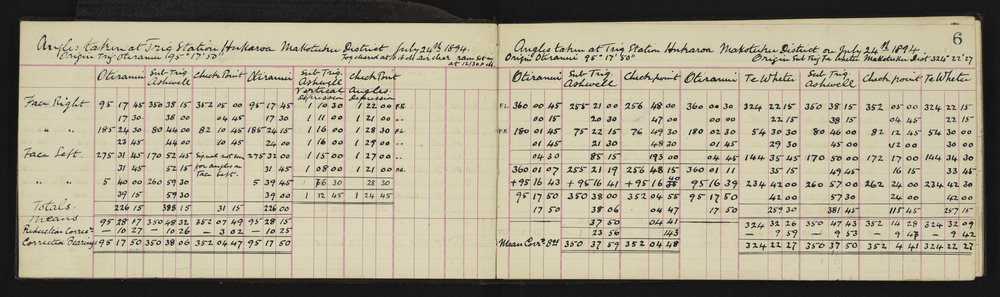 Angles taken at Trig Station Hukaroa Makotuku District July 24th 1894.
Origin Trig Oteranui 95° 17' 50"
Oteranui Sub Trig Ashwell Check Point Oteranui Sub Trig Ashwell Vertical Depression Check Point Angles Depression
Face Right 95 17 45 350 38 15 352 05 00 95 17 45 1 10 30 1 22 00 F.R.
17 30 38 00 04 45 17 30 1 11 00 1 21 00 "
" " 185 24 30 80 44 00 82 10 45 185 24 15 1 16 00 1 28 30 F.L.
23 45 44 00 10 45 24 00 1 16 00 1 29 00 "
Face Left. 275 31 45 170 52 45 275 32 00 1 15 00 1 27 00 "
31 45 52 15 31 45 1 08 00 1 21 00 "
" " 5 40 00 260 59 30 5 39 45 28 30
39 15 59 30 39 00 1 12 45 1 24 45
Totals. 226 15 388 15 31 15 226 00
Means 95 28 17 350 48 32 352 07 49 95 28 15
Reduction Correct. — 10 27 — 10 26 — 3 02 — 10 25
Corrected Bearings 95 17 50 350 38 06 352 04 47 95 17 50
6
Angles taken at Trig Station Hukaroa Makotuku District on July 24th 1894
Origin Oteranui 95° 17' 50" Origin Sub Trig Te Whetu Makotuku Dist 324° 22' 27
Oteranui Sub Trig Ashwell Check point Oteranui Te Whetu Sub Trig Ashwell Check point Te Whetu
F.L 360 00 45 255 21 00 256 48 00 360 00 30 324 22 15 350 38 15 352 05 00 324 22 15
00 15 20 30 47 00 00 00 22 15 38 15 04 45 22 15
F.R 180 01 45 75 22 15 76 49 30 180 02 30 54 30 30 80 46 00 82 12 45 54 30 00
01 45 21 30 48 30 01 45 29 30 45 00 12 00 30 00
04 30 85 15 193 00 04 45 144 35 45 170 50 00 172 17 00 144 34 30
360 01 07 255 21 19 256 48 15 360 01 11 35 15 49 45 16 15 33 45
+95 16 43 +95 16 41 +95 16 40 95 16 39 234 42 00 260 57 00 262 24 00 234 42 30
95 17 50 350 38 00 352 04 55 95 17 50 42 00 57 30 24 00 42 00
17 50 38 06 04 47 17 50 259 30 381 45 115 45 257 15
37 50 04 41 324 32 26 350 47 43 352 14 28 324 32 09
23 56 143 — 9 59 — 9 53 — 9 47 — 9 42
Mean Corr. Brg 350 37 59 352 04 48 324 22 27 350 37 50 352 4 41 324 22 27